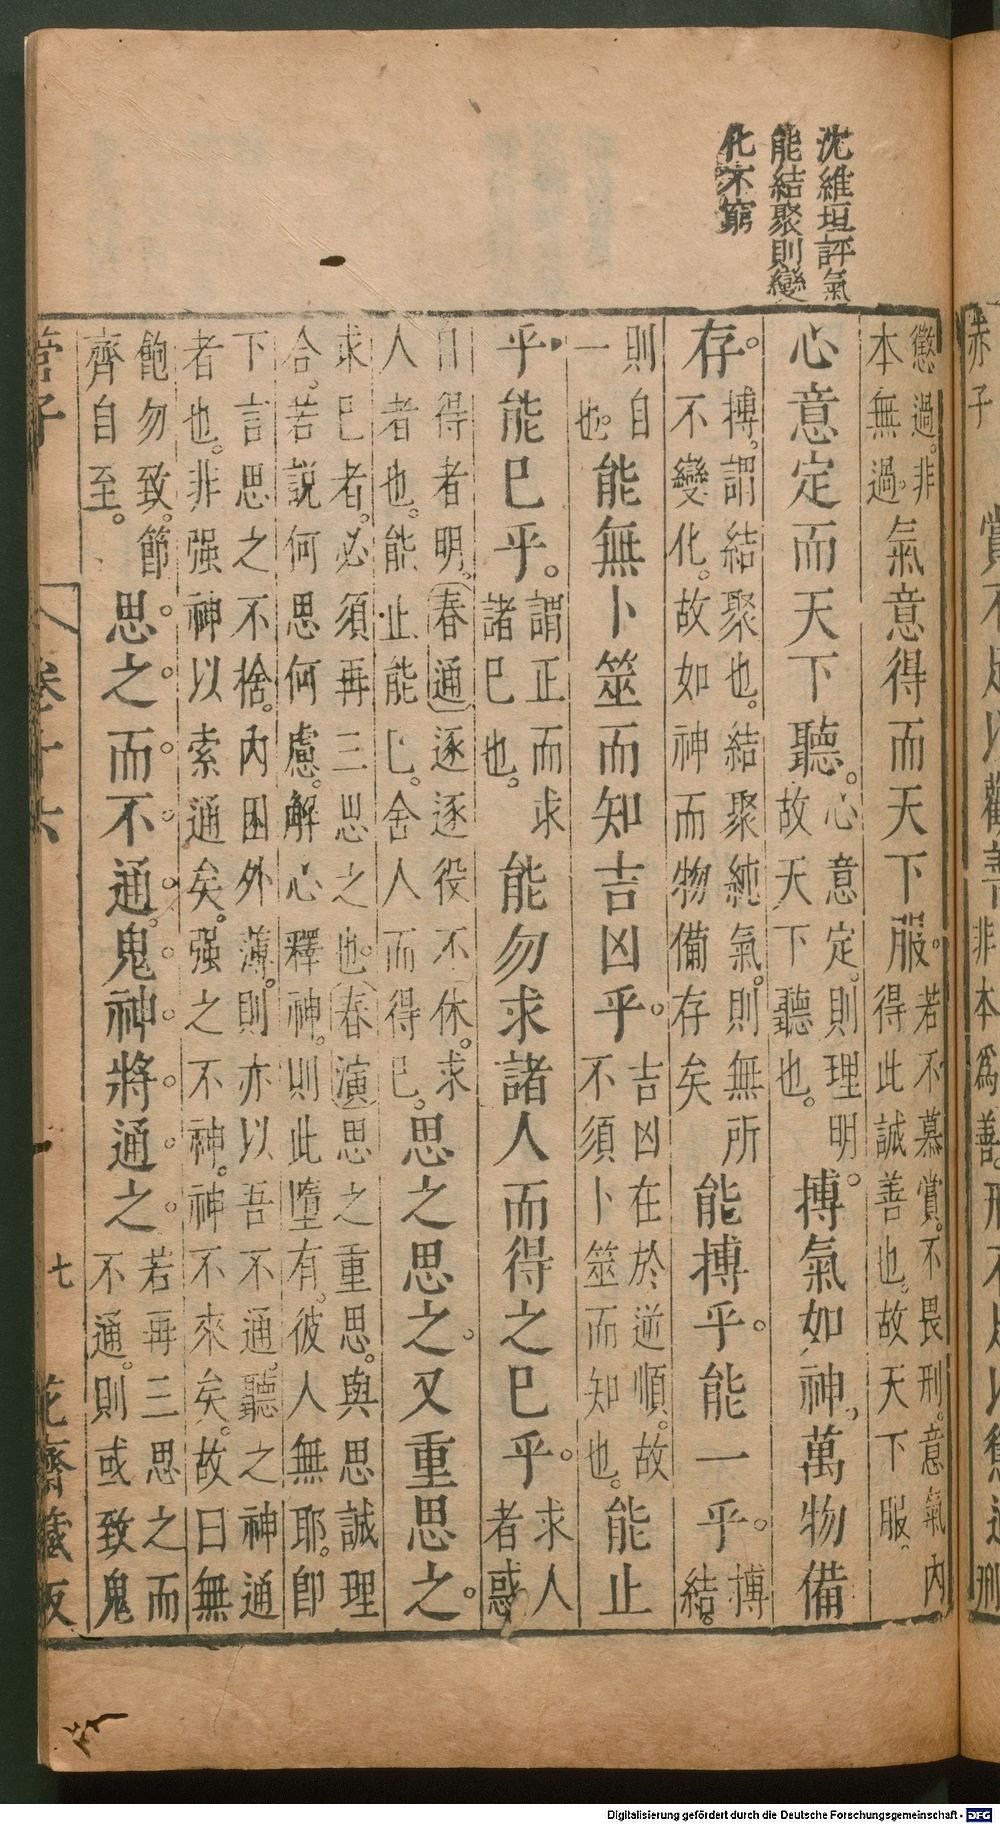 沈維垣評氣
能結聚則變
化不窮
懲過。非
本無過。
氣意得而天下服。
若不慕賞。不畏刑。意氣內
得此誠善也。故天下服。
心意定而天下聽。
心意定。則理明。
故天下聽也。
搏氣如神。萬物備
存。
搏。謂結聚也。結聚純氣。則無所
不變化。故如神而物備存矣
能搏乎。能一乎。
搏
結。
則自
一也。
能無卜筮而知吉凶乎。
吉凶在於逆順。故
不須卜筮而知也。
能止
乎能巳乎。
謂正而求
諸巳也。
能勿求諸人而得之巳乎。
求人
者惑
自得者明。春通逐逐役不休。求
人者也。能止能巳。舍人而得巳。
思之思之。又重思之。
求巳者。必須再三思之也。春演思之重思。與思誠理
合。若説何思何慮。解心釋神。則此墮有。彼人無耶。卽
下言思之不捨。內困外薄。則亦以吾不通。聽之神通
者也。非强神以索通矣。强之不神。神不來矣。故曰無
飽勿致。節
齊自至。
思之。而不通。鬼神將通之。
若再三思之而
不通。則或致鬼
管子 卷十六 七 花齋藏板
Digitalisierung gefördert durch die Deutsche Forschungsgemeinschaft - DFG